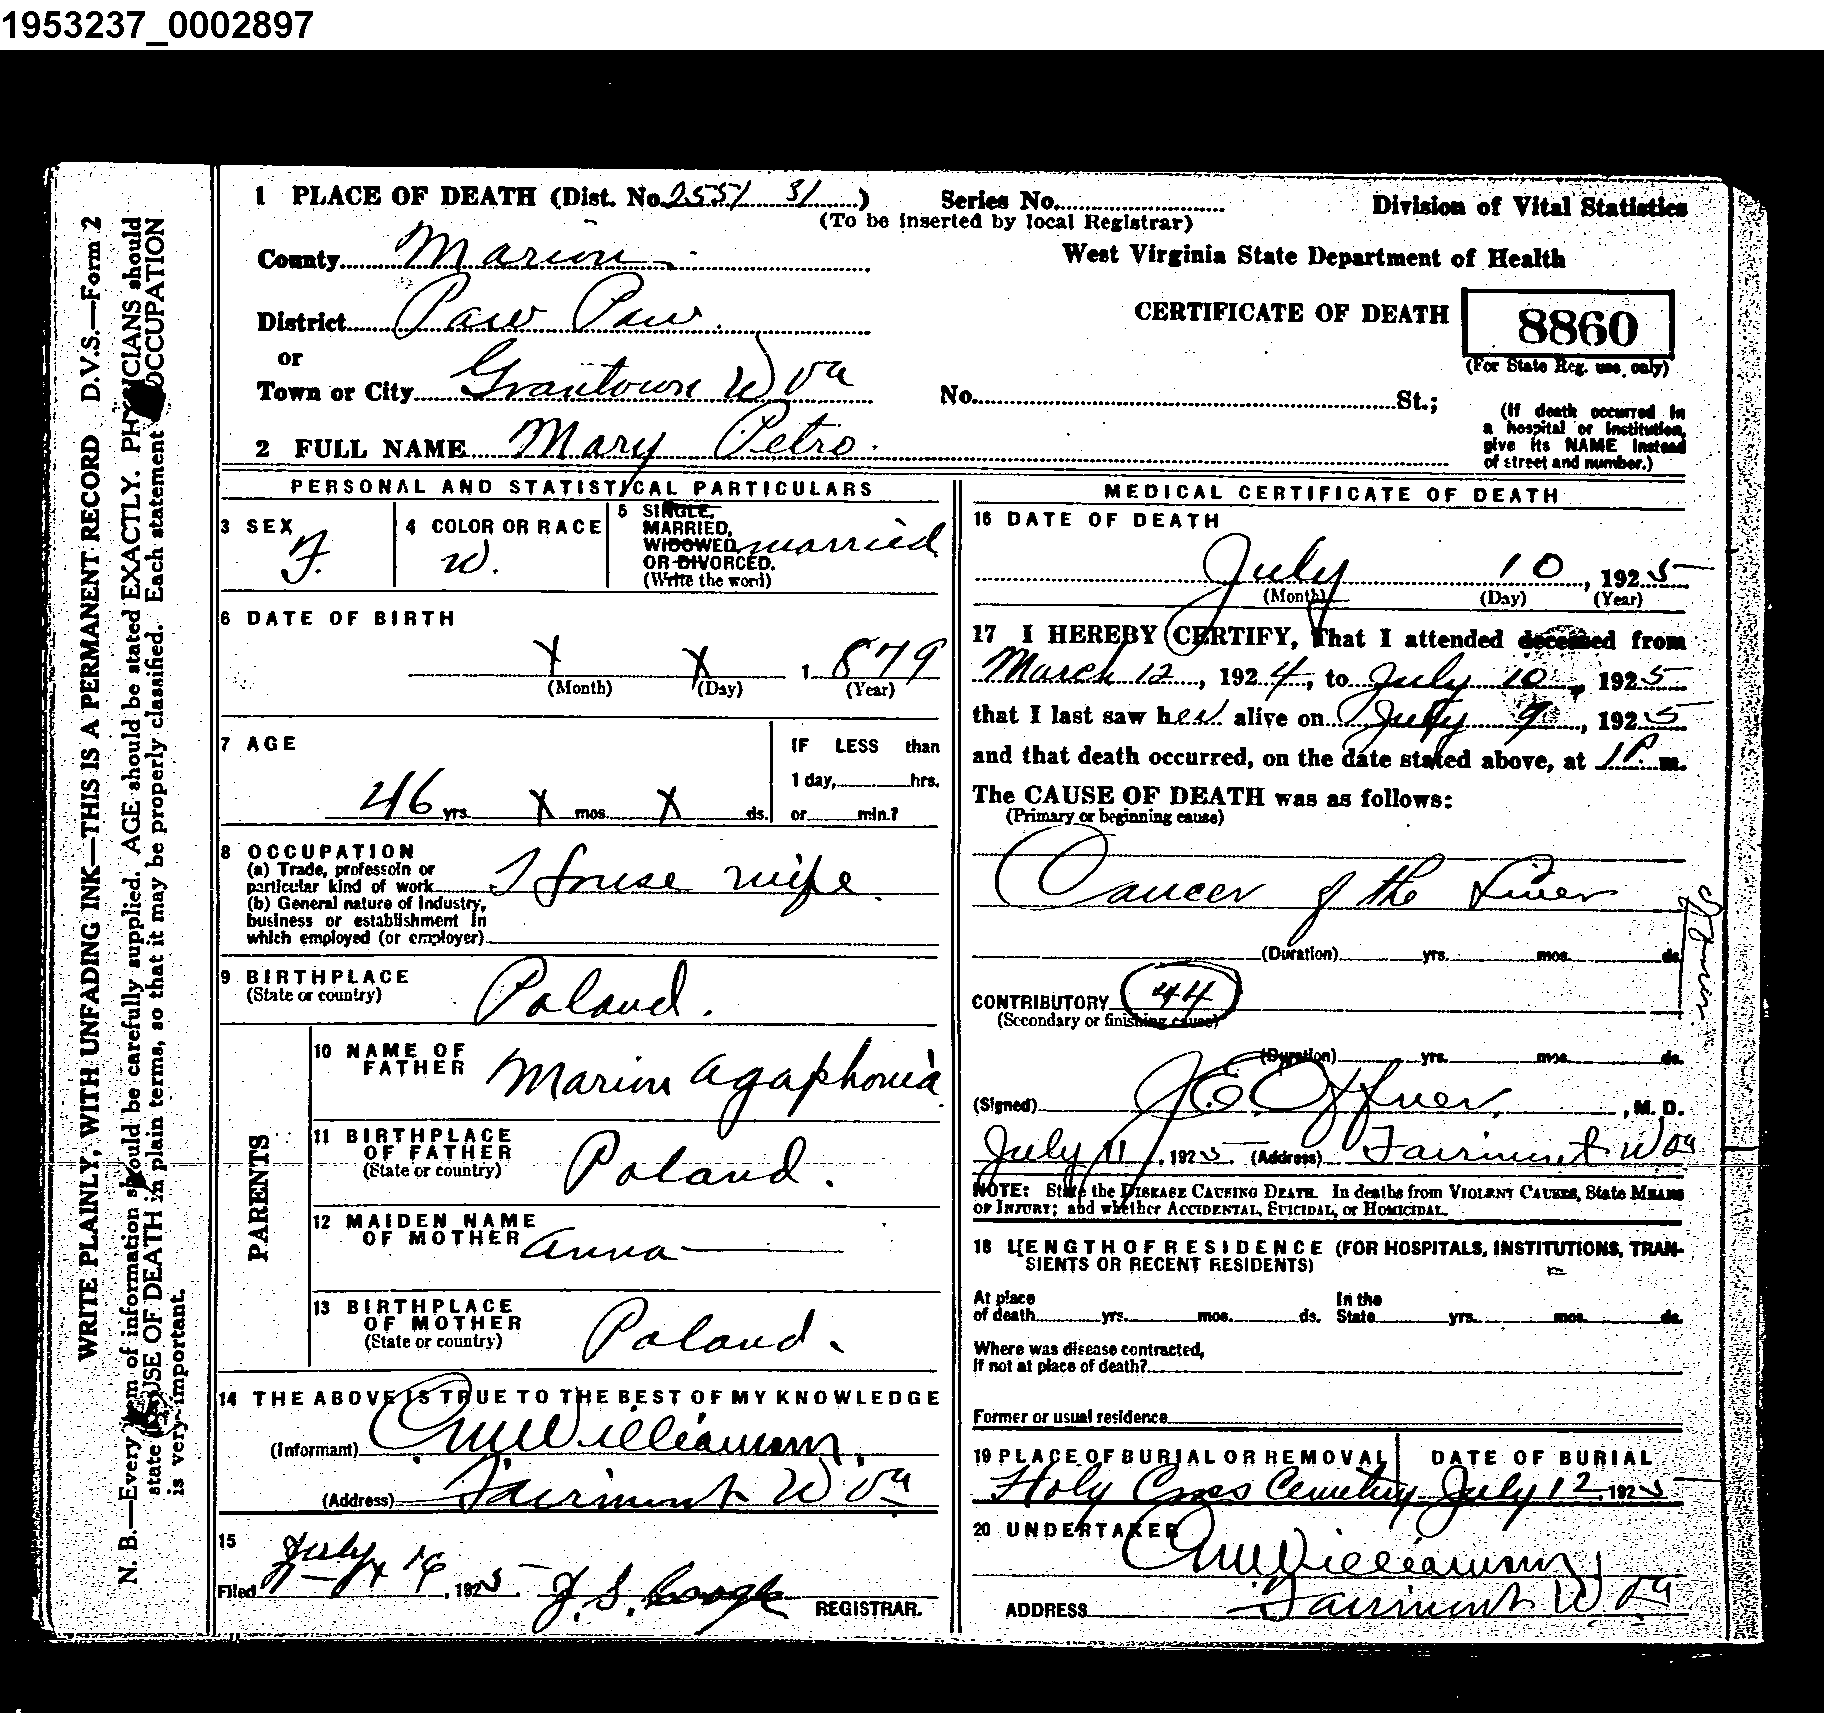 1953237_0002897
WRITE PLAINLY, WITH UNFADING INK—THIS IS A PERMANENT RECORD D.V.S.—Form 2
N. B.—Every item of information should be carefully supplied. AGE should be stated EXACTLY. PHYSICIANS should
state CAUSE OF DEATH in plain terms, so that it may be properly classified. Each statement OCCUPATION
is very important.
1 PLACE OF DEATH (Dist. No. 2551 31)
Series No.
(To be inserted by local Registrar)
Division of Vital Statistics
County Marion
West Virginia State Department of Health
District Paw Paw.
CERTIFICATE OF DEATH
8860
(For State Reg. use only)
or
Town or City Grantown W Va
No. St.;
(If death occurred in
a hospital or institution,
give its NAME instead
of street and number.)
2 FULL NAME Mary Petro.
PERSONAL AND STATISTICAL PARTICULARS
3 SEX
F.
4 COLOR OR RACE
W.
5 SINGLE,
MARRIED,
WIDOWED married
OR DIVORCED.
(Write the word)
6 DATE OF BIRTH
X X 1879
(Month) (Day) (Year)
7 AGE
46 yrs. X mos. X ds.
IF LESS than
1 day, hrs.
or min.?
8 OCCUPATION
(a) Trade, professoin or
particular kind of work House wife
(b) General nature of Industry,
business or establishment in
which employed (or employer)
9 BIRTHPLACE
(State or country) Poland.
PARENTS
10 NAME OF
FATHER Marion Agaphonia
11 BIRTHPLACE
OF FATHER
(State or country) Poland.
12 MAIDEN NAME
OF MOTHER Anna
13 BIRTHPLACE
OF MOTHER
(State or country) Poland.
14 THE ABOVE IS TRUE TO THE BEST OF MY KNOWLEDGE
(Informant) CMWilliamson,
(Address) Fairmont W Va
15
Filed July 16, 1925 J. S. REGISTRAR.
MEDICAL CERTIFICATE OF DEATH
16 DATE OF DEATH
July 10, 1925
(Month) (Day) (Year)
17 I HEREBY CERTIFY, That I attended deceased from
March 12, 1924, to July 10, 1925
that I last saw her alive on July 9, 1925
and that death occurred, on the date stated above, at 1 P. m.
The CAUSE OF DEATH was as follows:
(Primary or beginning cause)
Cancer of the Liver
(Duration) yrs. mos. ds.
CONTRIBUTORY 44
(Secondary or finishing cause)
(Duration) yrs. mos. ds.
(Signed) J E Offner, M. D.
July 11, 1925 (Address) Fairmont W Va
NOTE: State the DISEASE CAUSING DEATH. In deaths from VIOLENT CAUSES, State MEANS
OF INJURY; and whether ACCIDENTAL, SUICIDAL, or HOMICIDAL.
18 LENGTH OF RESIDENCE (FOR HOSPITALS, INSTITUTIONS, TRAN-
SIENTS OR RECENT RESIDENTS)
At place
of death yrs. mos. ds.
In the
State yrs. mos. ds.
Where was disease contracted,
If not at place of death?
Former or usual residence
19 PLACE OF BURIAL OR REMOVAL DATE OF BURIAL
Holy Cross Cemetery July 12, 1925
20 UNDERTAKER
CMWilliamson,
ADDRESS Fairmont W Va